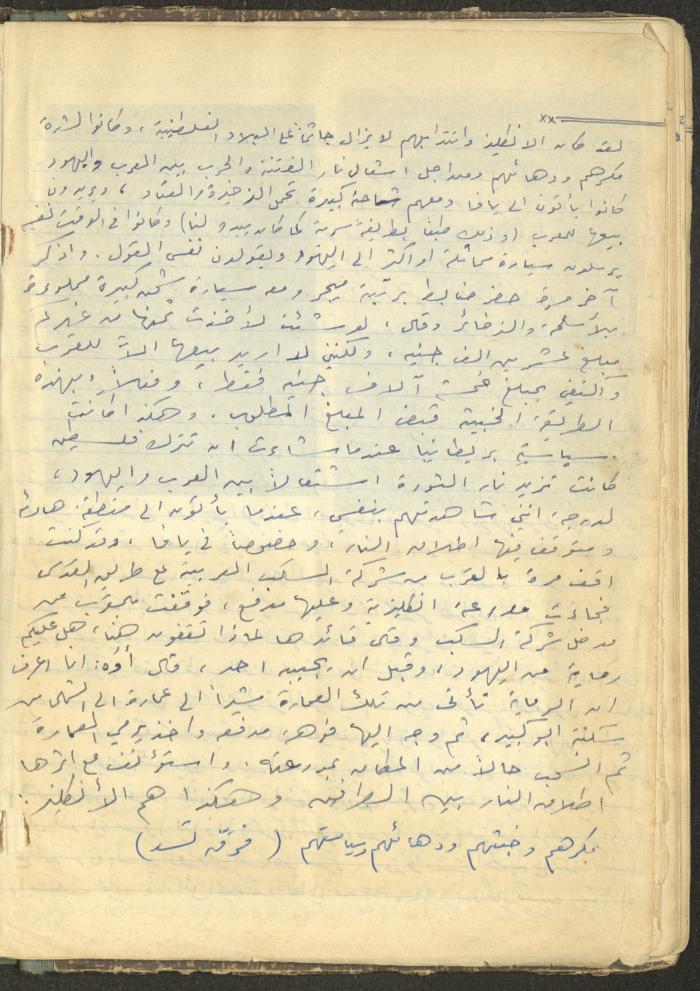 xx
لقد كان الانكليز وانتدابهم لا يزال جاثماً على البلاد الفلسطينية، وكانوا لشدة
مكرهم ودهائهم ومن اجل اشعال نار الفتنة والحرب بين العرب واليهود
كانوا يأتون الى يافا ومعهم شاحنة كبيرة تحمل الذخيرة والعتاد، ويريدون
بيعها للعرب (وذلك طبعاً بطريقة سرية كما كان يبدو لنا) وكانوا في الوقت نفسه
يرسلون سيارة مماثلة او اكثر الى اليهود ويقولون نفس القول. واذكر
آخر مرة حضر ضابط برتبة ميجر ومعه سيارة شحن كبيرة مملوءة
بالأسلحة والذخائر وقال، لو شئت لأخذت ثمنها من غيركم
مبلغ عشرين الف جنيه، ولكنني لا اريد بيعها الاّ للعرب
وأكتفي بمبلغ خمسة آلاف جنيه فقط، وفعلاً وبهذه
الطريقة الخبيثة قبض المبلغ المطلوب. وهكذا كانت
سياسة بريطانيا عندما شاءت ان تترك فلسطين
كانت تزيد نار الثورة اشتعالاً بين العرب واليهود،
لدرجة انني شاهدتهم بنفسي، عندما يأتون الى منطقة هادئة
ومتوقف فيها اطلاق النار، وخصوصاً في يافا، وقد كنت
اقف مرة بالقرب من شركة السكب العربية على طريق القدس
فجاءت مدرعة انكليزية وعليها مدفع، فوقفت بالقرب من
مدخل شركة السكب وقال قائدها لماذا تقفون هنا، هل عليكم
رماية من اليهود، وقبل ان يجيبه احد، قال أوه: انا اعرف
ان الرماية تأتي من تلك العمارة مشيراً الى عمارة الى الشمال من
سكنة ابو كبير، ثم وجه اليها فوهة مدفعه واخذ يرمي العمارة
ثم انسحب حالاً من المكان بمدرعته. واستؤنف على اثرها
اطلاق النار بين الطرفين وهكذا هم الأنكليز:
بمكرهم وخبثهم ودهائهم وسياستهم (فرّق تسد)